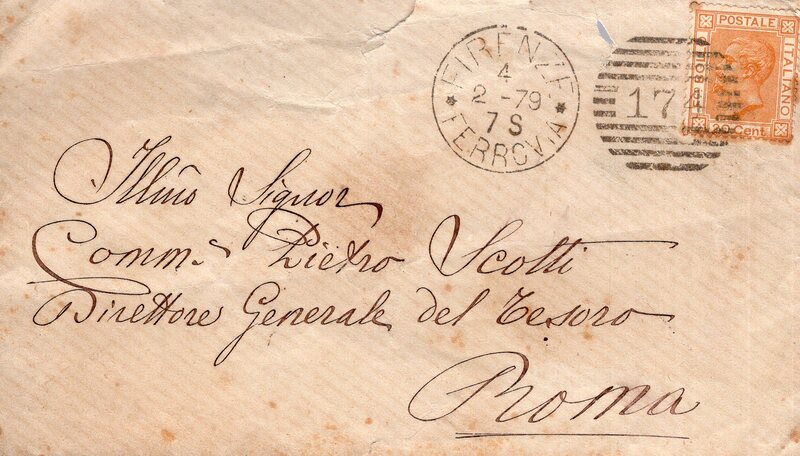 FIRENZE
4
2 -79
7 S
FERROVIA
174
POSTALE
ITALIANO
20 Cent.
Illmo Signor
Comm. Pietro Scotti
Direttore Generale del Tesoro
Roma